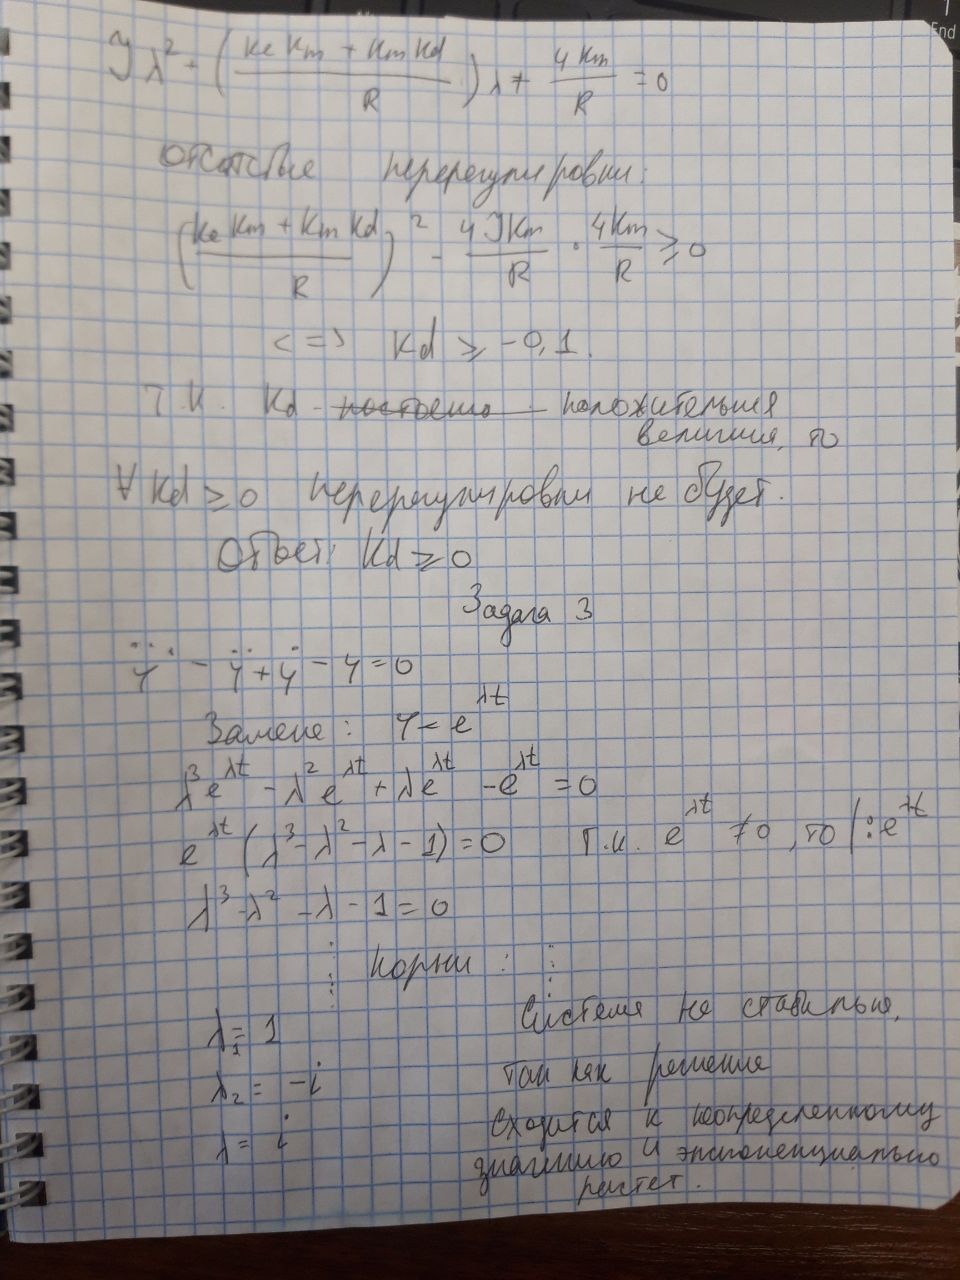 Jλ² + (KeKm + KmKd / R)λ + 4Km / R = 0
Отсутствие перерегулировки:
(KeKm + KmKd / R)² - 4JKm / R · 4Km / R ≥ 0
<=> Kd ≥ -0,1.
Т.к. Kd - положительная
величина, то
∀ Kd ≥ 0 перерегулировки не будет.
Ответ: Kd ≥ 0
Задача 3
y⃛ - ÿ + ẏ - y = 0
Замена: y = e^λt
λ³e^λt - λ²e^λt + λe^λt - e^λt = 0
e^λt (λ³ - λ² - λ - 1) = 0 т.к. e^λt ≠ 0, то |: e^λt
λ³ - λ² - λ - 1 = 0
Корни:
λ₁ = 1
λ₂ = -i
λ = i
Система не стабильна,
так как решение
сходится к неопределенному
значению и экспоненциально
растет.